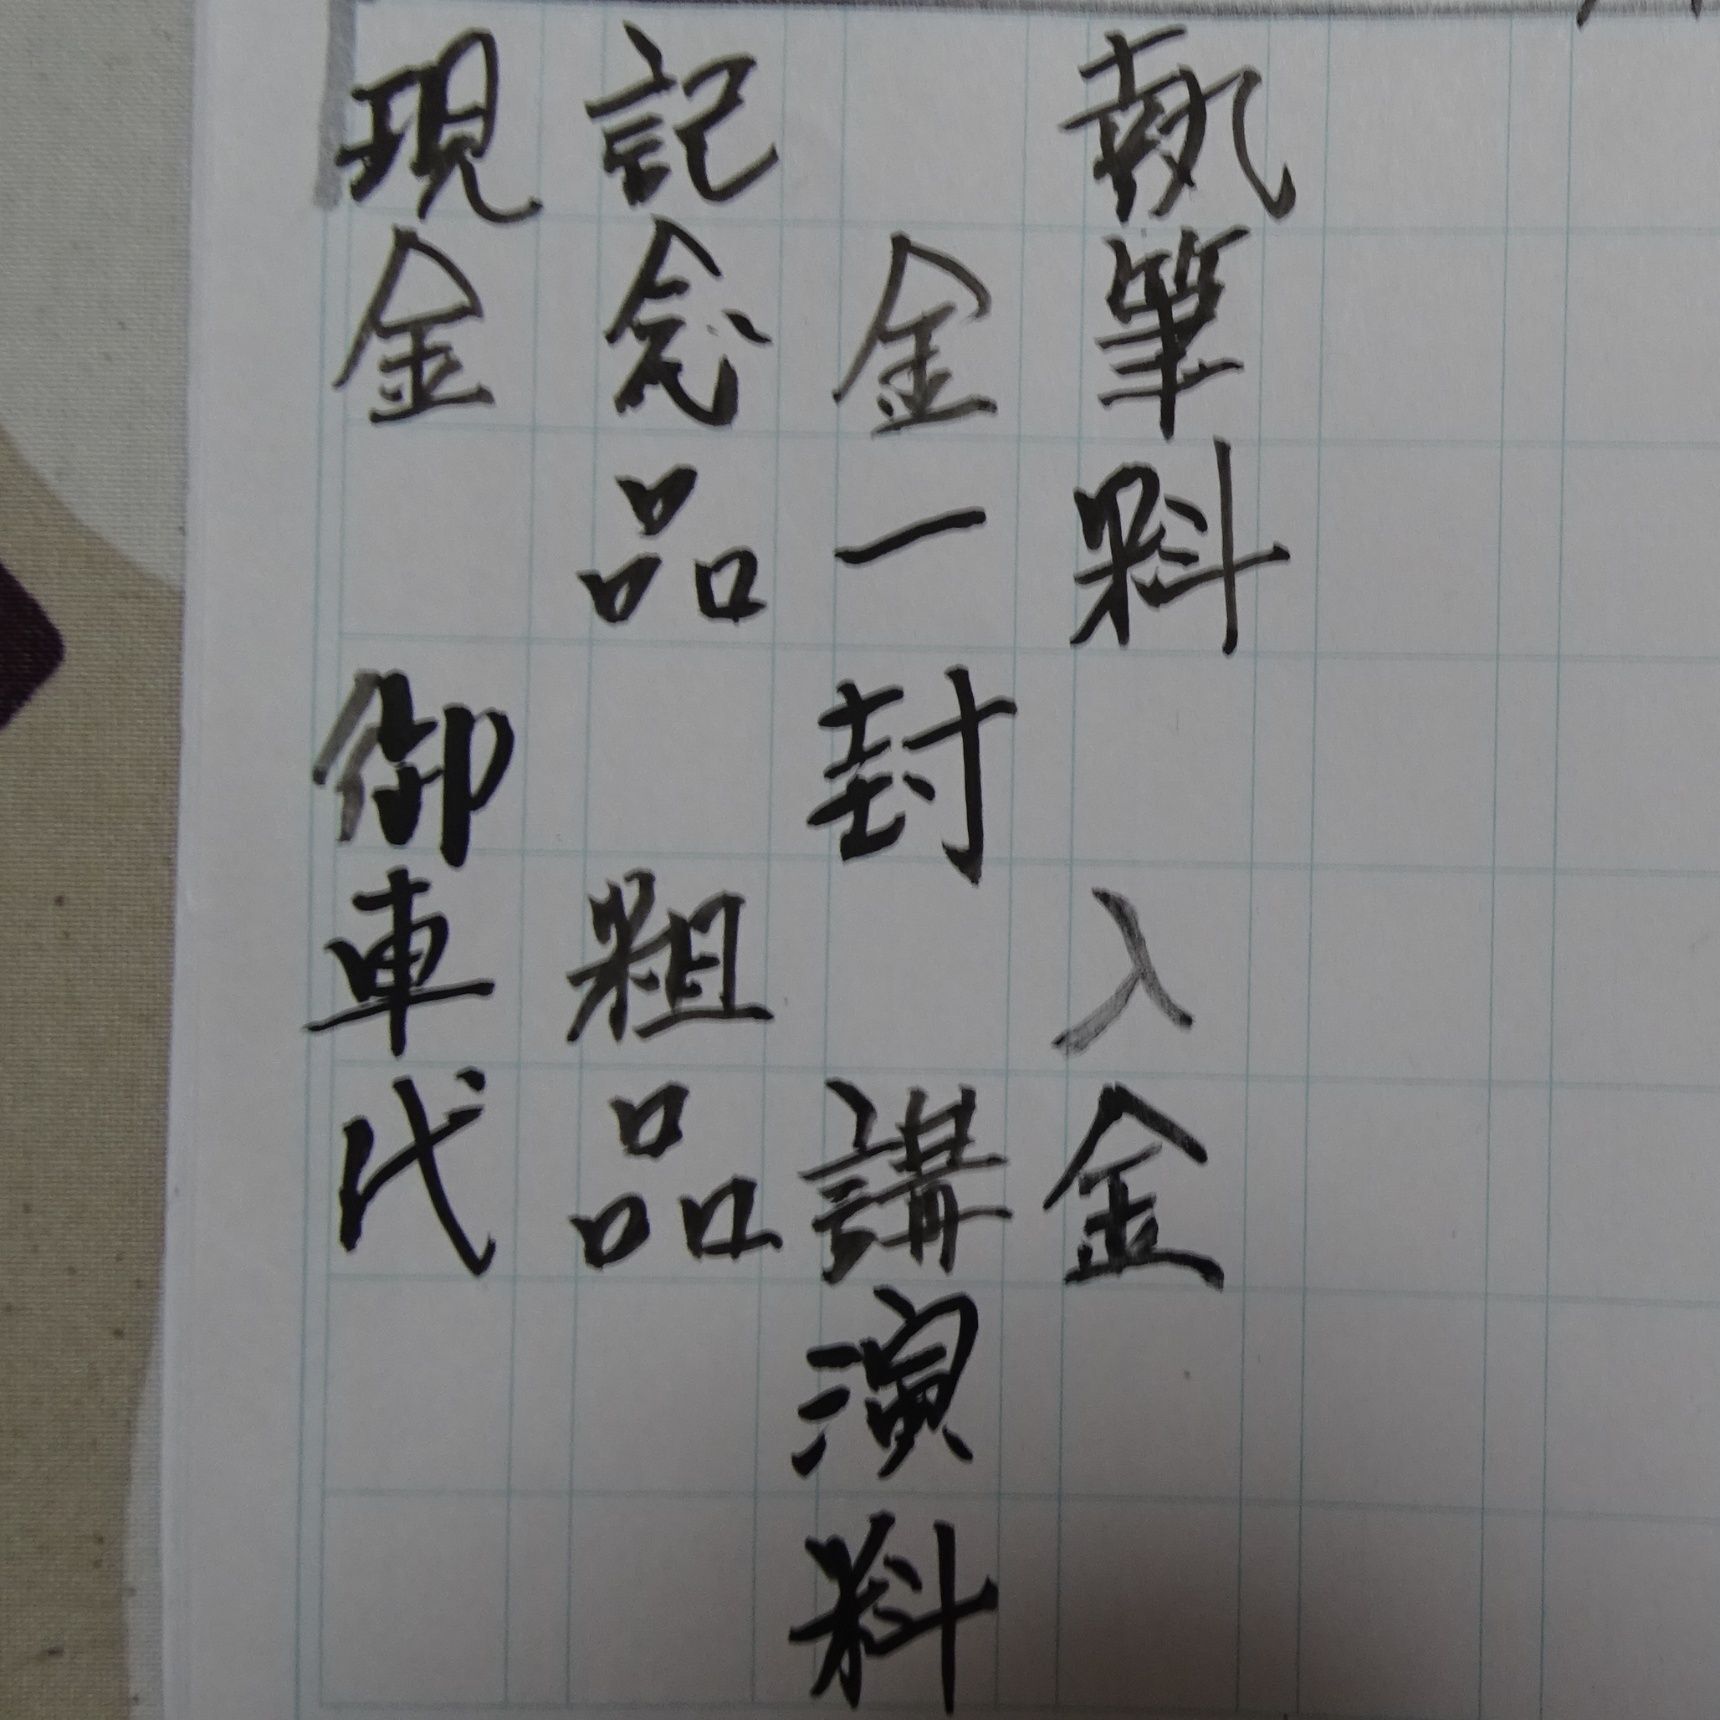 執筆料　入金
金一封　講演料
記念品　粗品
現金　御車代